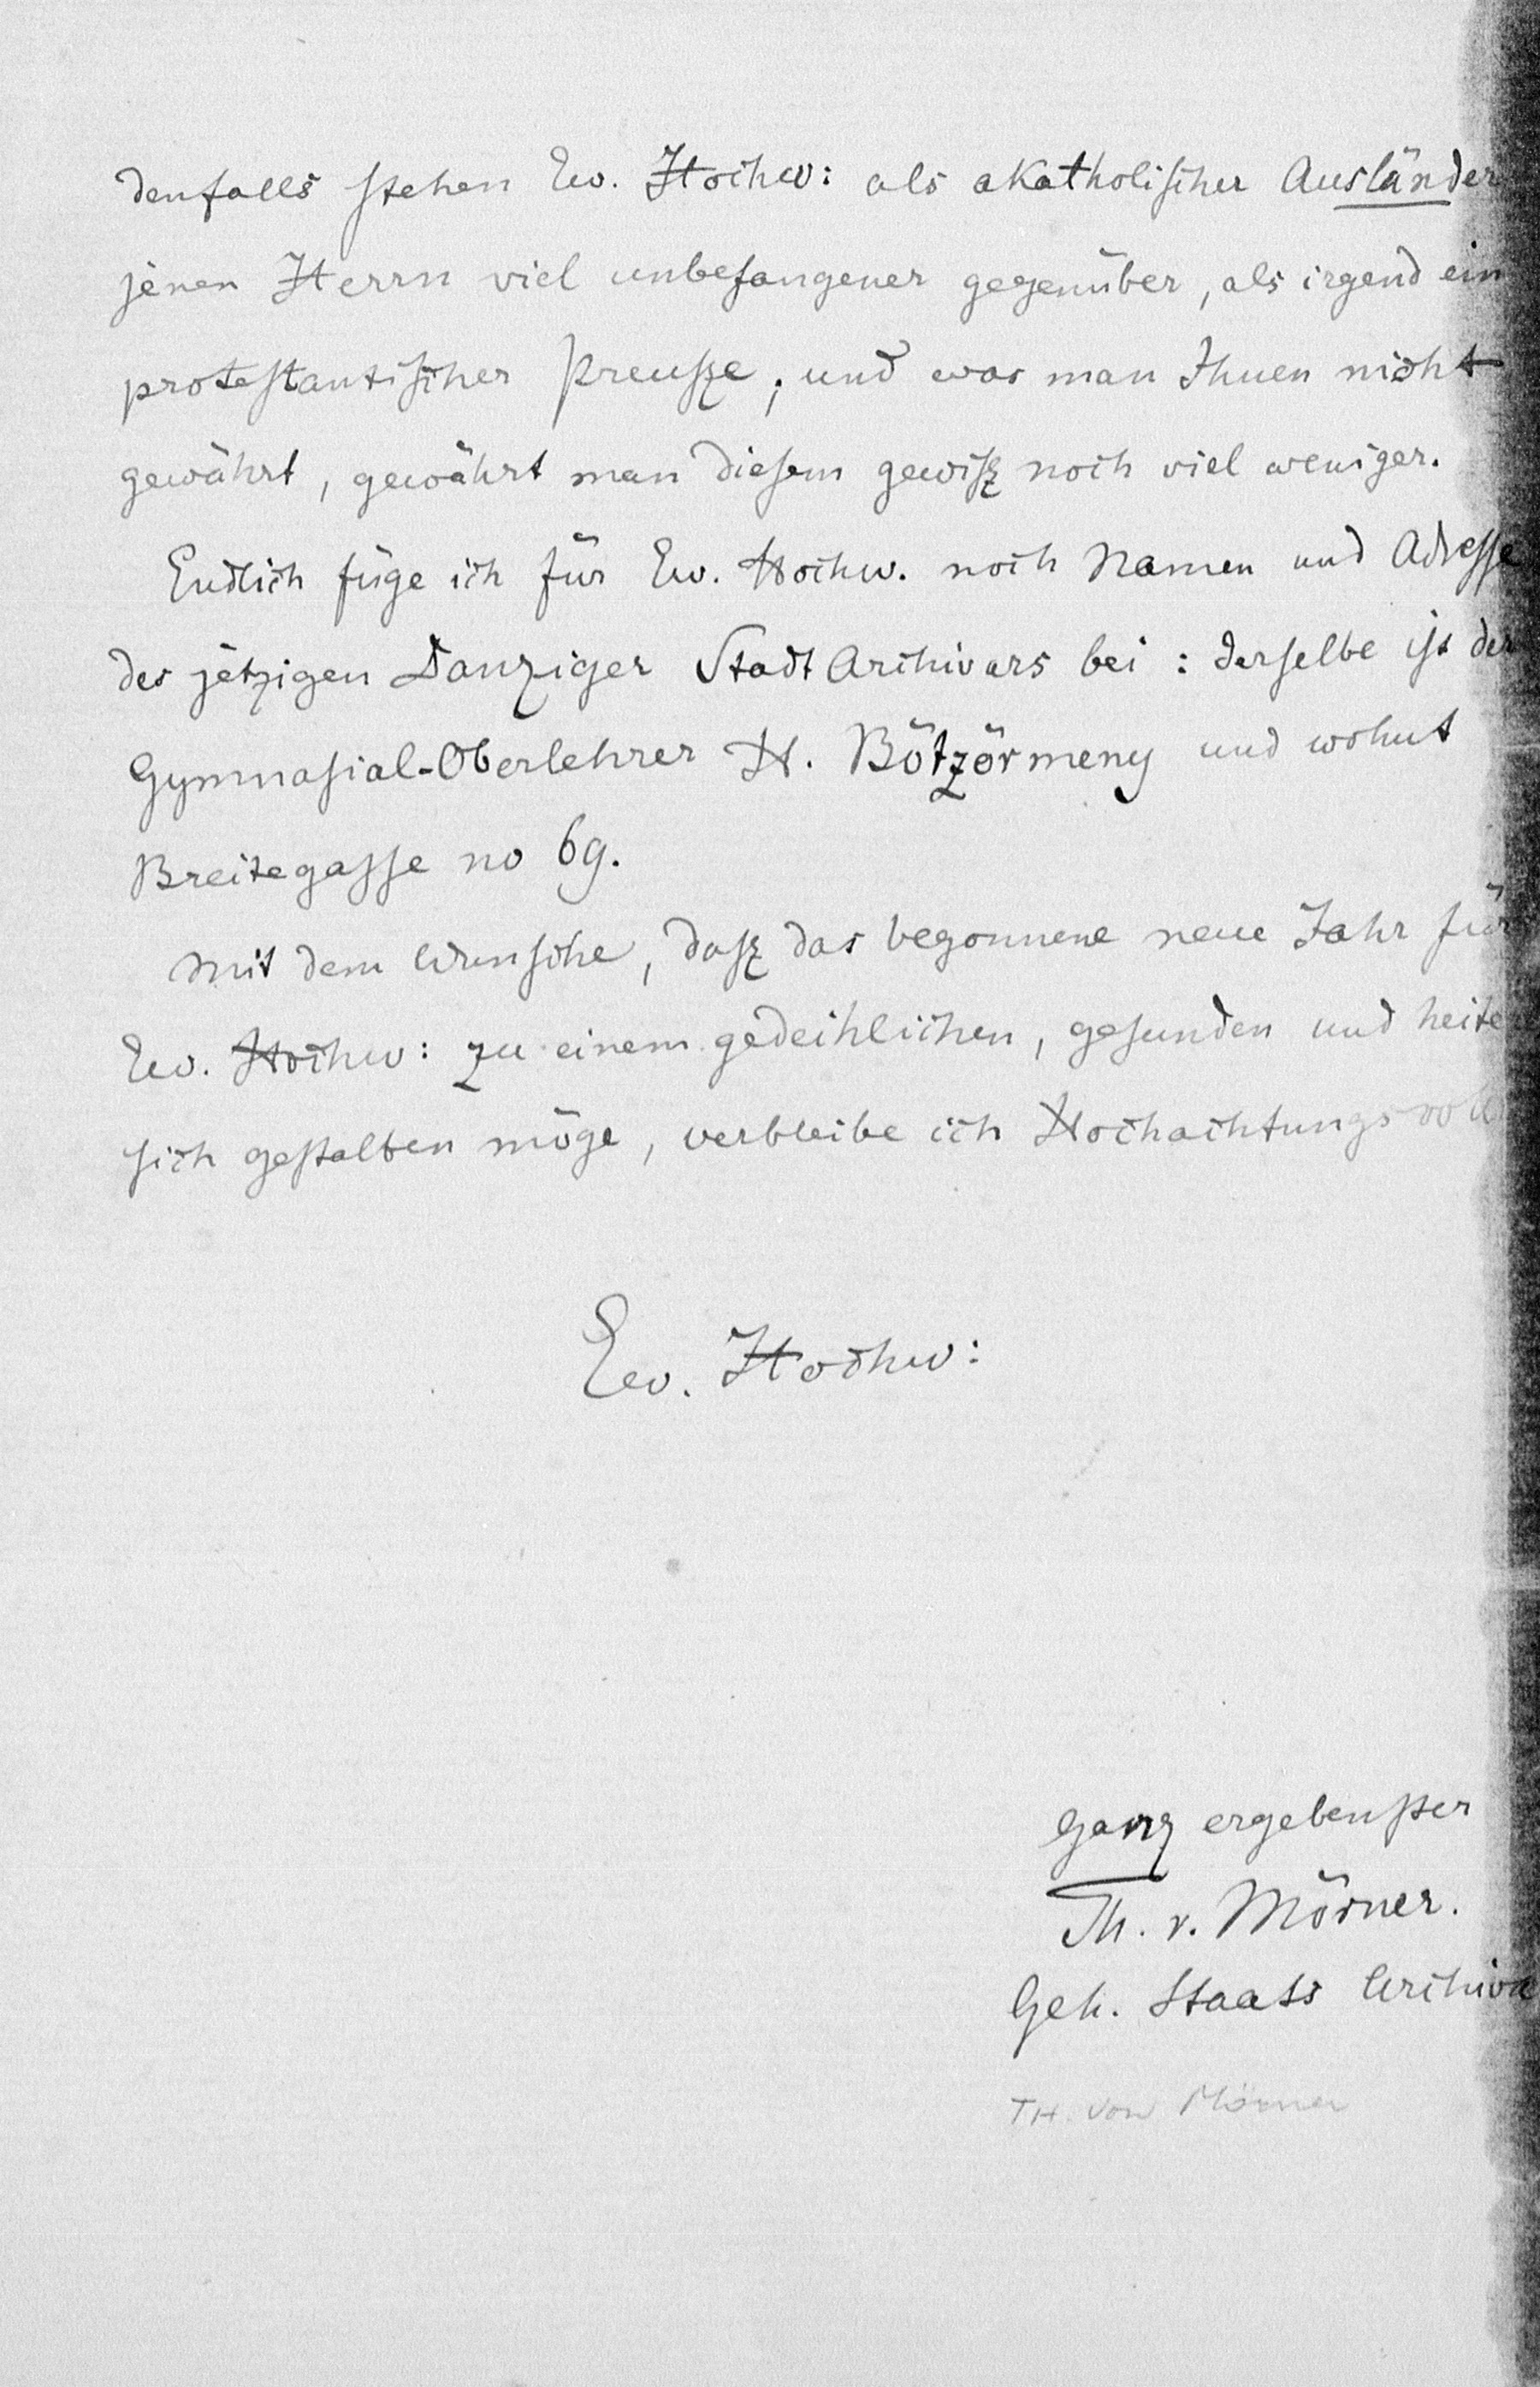 denfalls stehen Ew. Hochw: als akatholischer Ausländer
jenen Herrn viel unbefangener gegenüber, als irgend ein
protestantischer Preusze; und was man Ihnen nicht
gewährt, gewährt man diesem gewisz noch viel weniger.
Endlich füge ich für Ew. Hochw. noch Namen und Adresse
des jetzigen Danziger Stadt Archivars bei: derselbe ist der
Gymnasial-Oberlehrer H. Bötzörmeny und wohnt
Breitegasse no 69.
Mit dem Wunsche, dasz das begonnene neue Jahr für
Ew. Hochw: zu einem gedeihlichen, gesunden und heite
sich gestalten möge, verbleibe ich Hochachtungsvoll
Ew. Hochw:
Ganz ergebenster
Th. v. Mörner.
Geh. Staats Archiva
TH. von Mörner